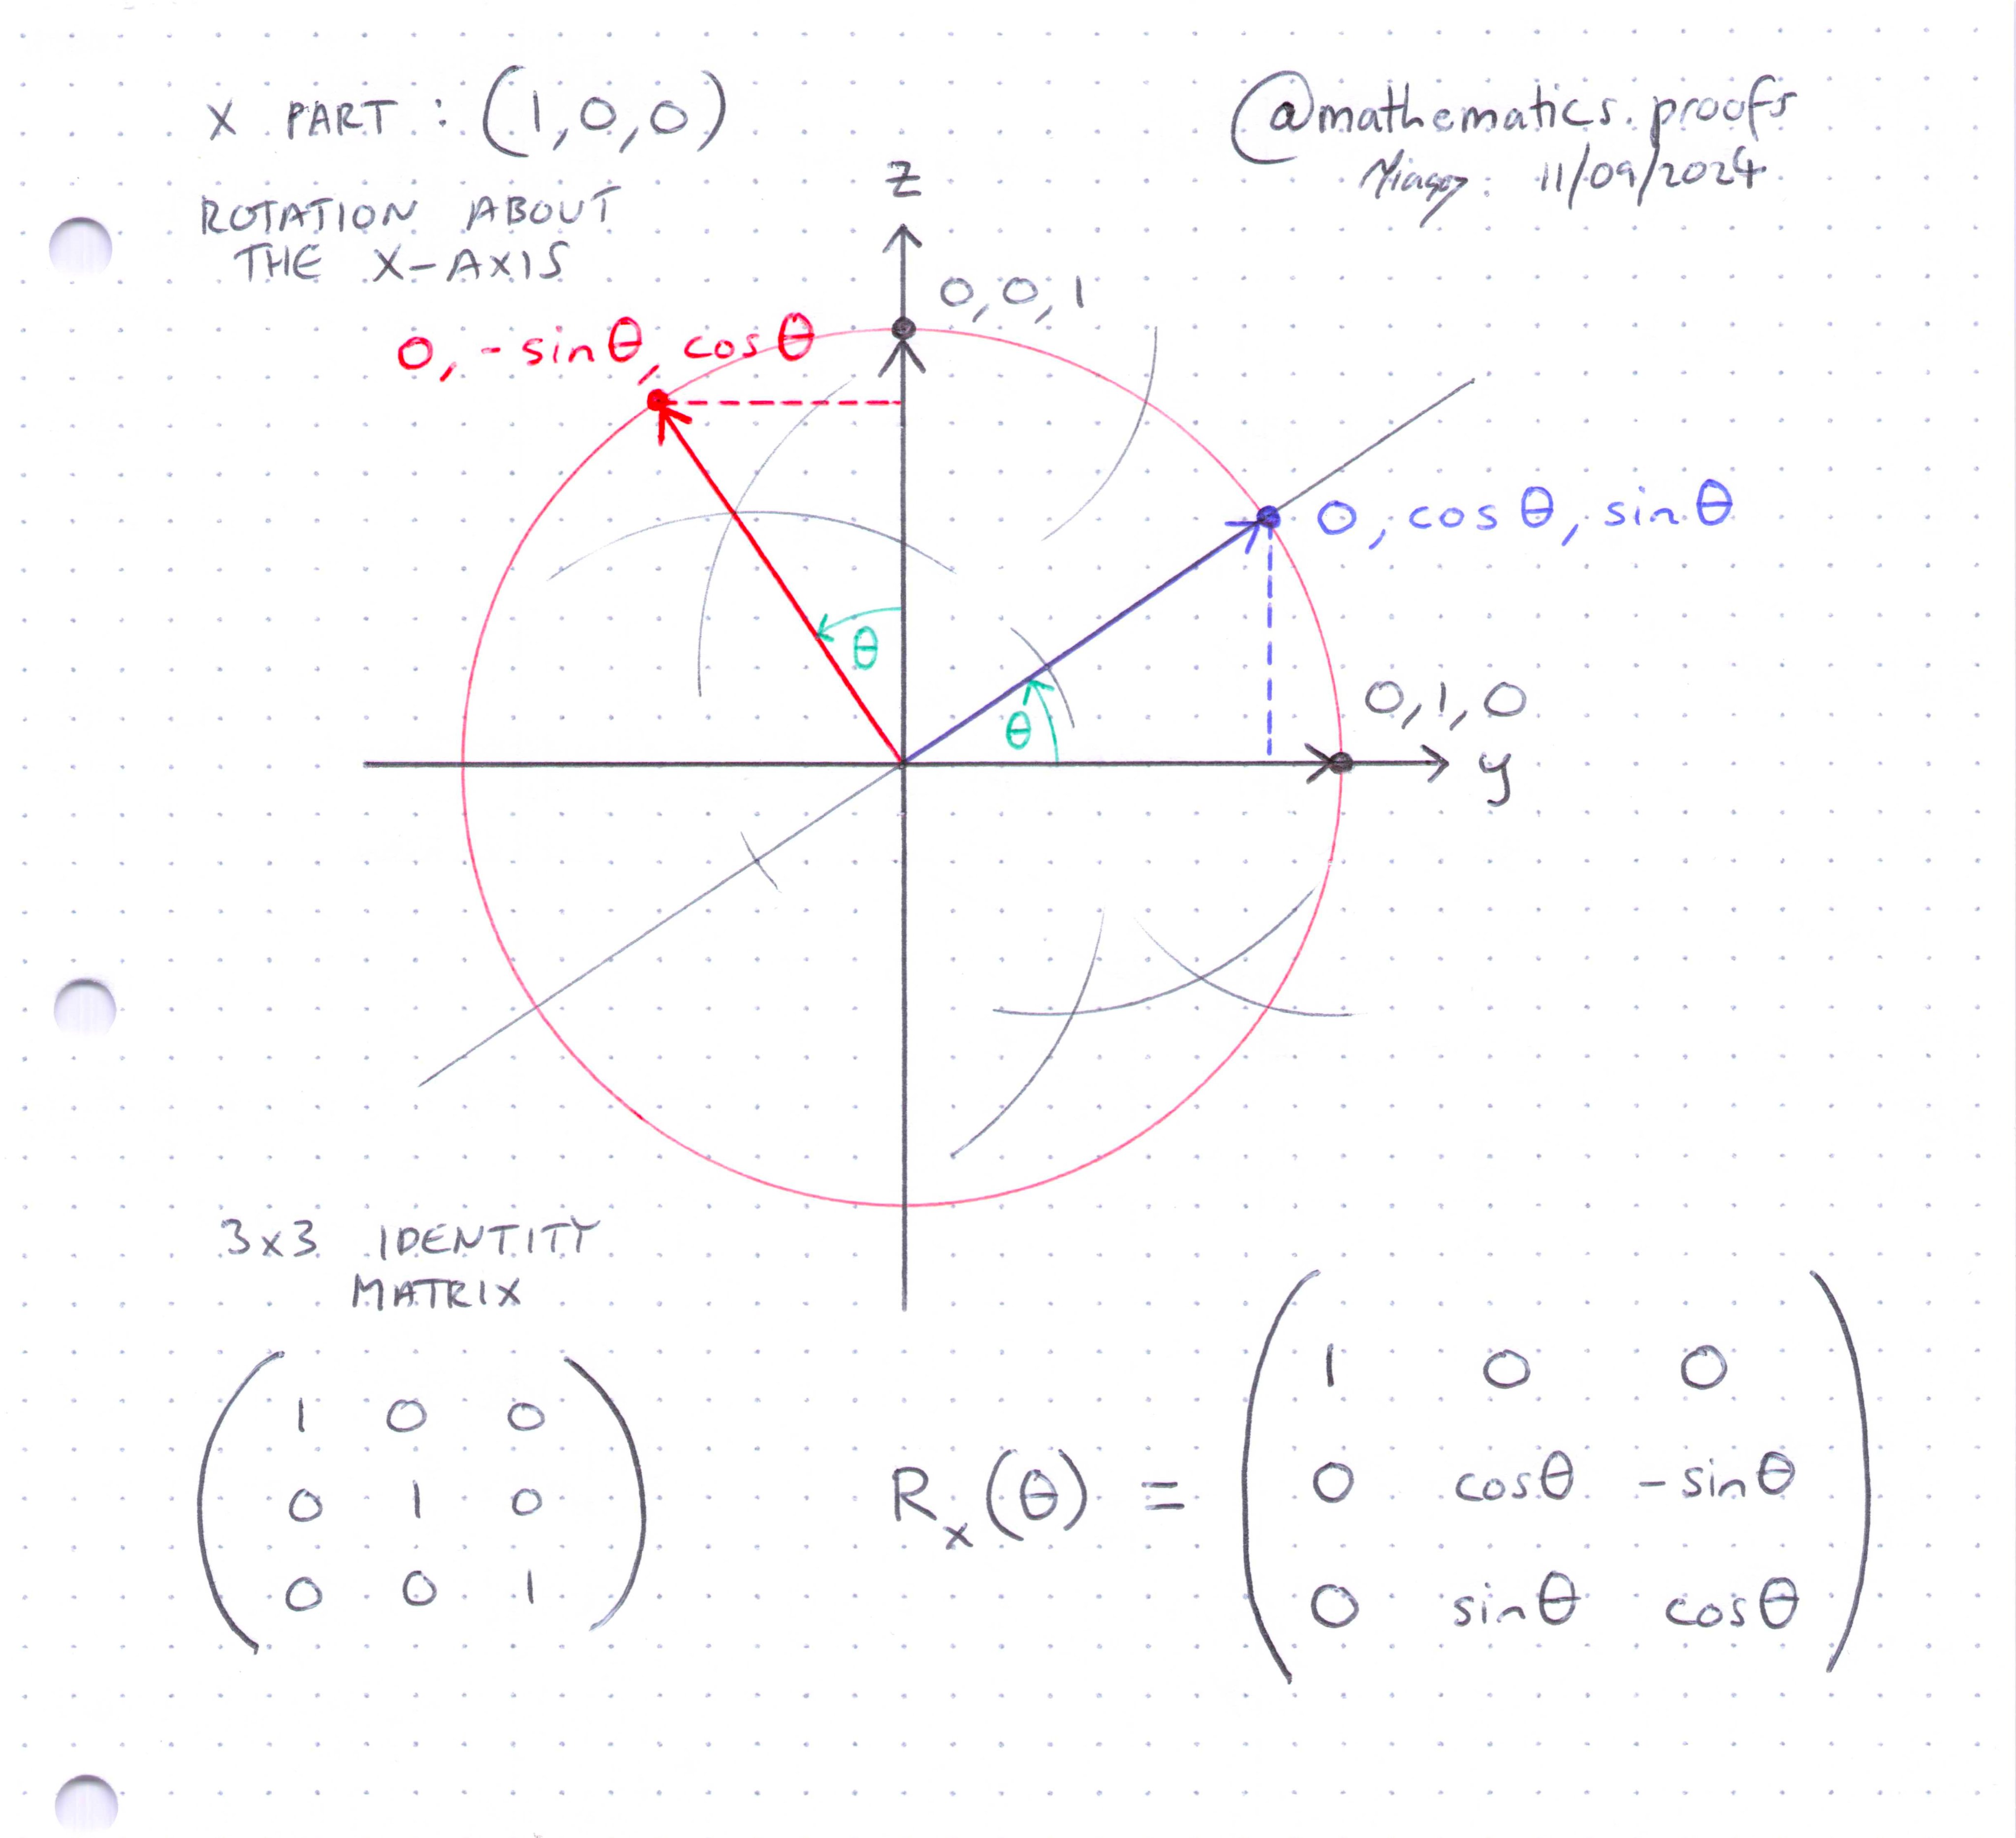 X PART : (1,0,0)
@mathematics.proofs
11/09/2024
ROTATION ABOUT
THE X-AXIS
z
0,0,1
0, -sinθ, cosθ
0, cosθ, sinθ
θ
θ
0,1,0
y
3x3 IDENTITY
MATRIX
1 0 0
0 1 0
0 0 1
Rₓ(θ) =
1 0 0
0 cosθ -sinθ
0 sinθ cosθ